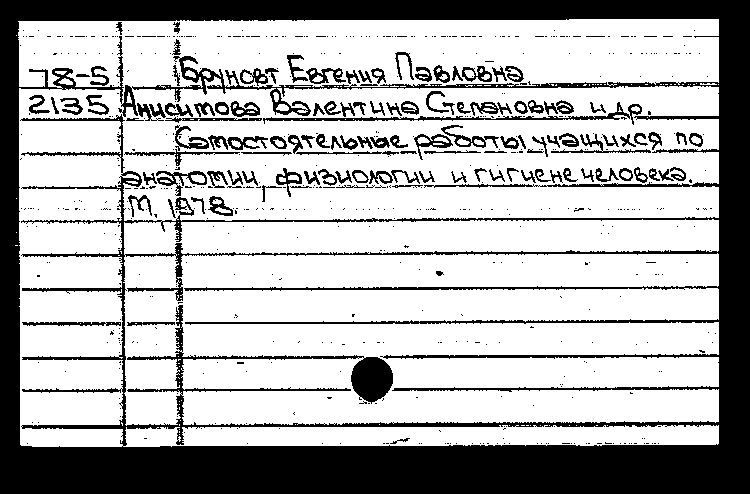 78-5 Бруновт Евгения Павловна
2135 Анисимова Валентина Степановна и др.
Самостоятельные работы учащихся по
анатомии, физиологии и гигиене человека.
М., 1978.